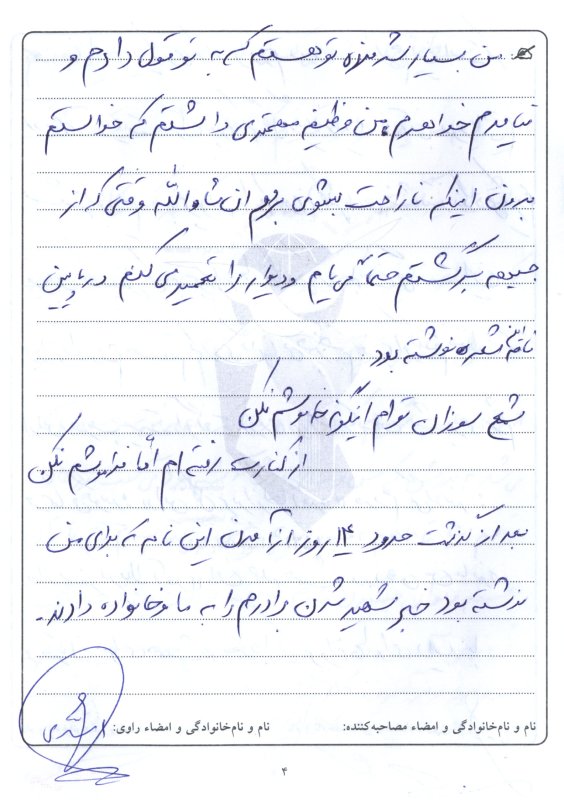 من بسیار شرمنده تو هستم که به تو قول دادم و
نیامدم خواهرم من وظیفه مهمتری داشتم که خواستم
بدون اینکه ناراحت بشوی بروم ان شاءالله وقتی که از
جبهه برگشتم حتماً می یام و دیوار را تعمیر می کنم در پایین
نامه شعر نوشته بود
شمع سوزان توام اینگونه خاموشم نکن
از کنارت رفته ام امّا فراموشم نکن
بعد از گذشت حدود ۱۴ روز از آمدن این نامه که برای من
نوشته بود خبر شهید شدن برادرم را به ما و خانواده دادند.
نام و نام‌خانوادگی و امضاء مصاحبه‌کننده: نام و نام‌خانوادگی و امضاء راوی:
۴